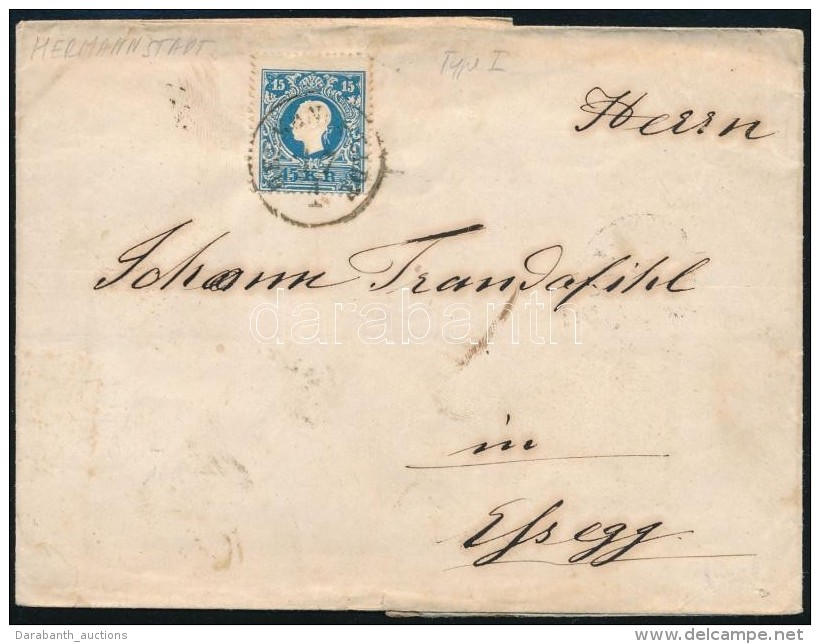 HERMANNSTADT
Type I
15 15
15 KR
Herrn
Johann Trandafihl
darabanth
in
Essegg
Darabanth_auctions
delcampe.net